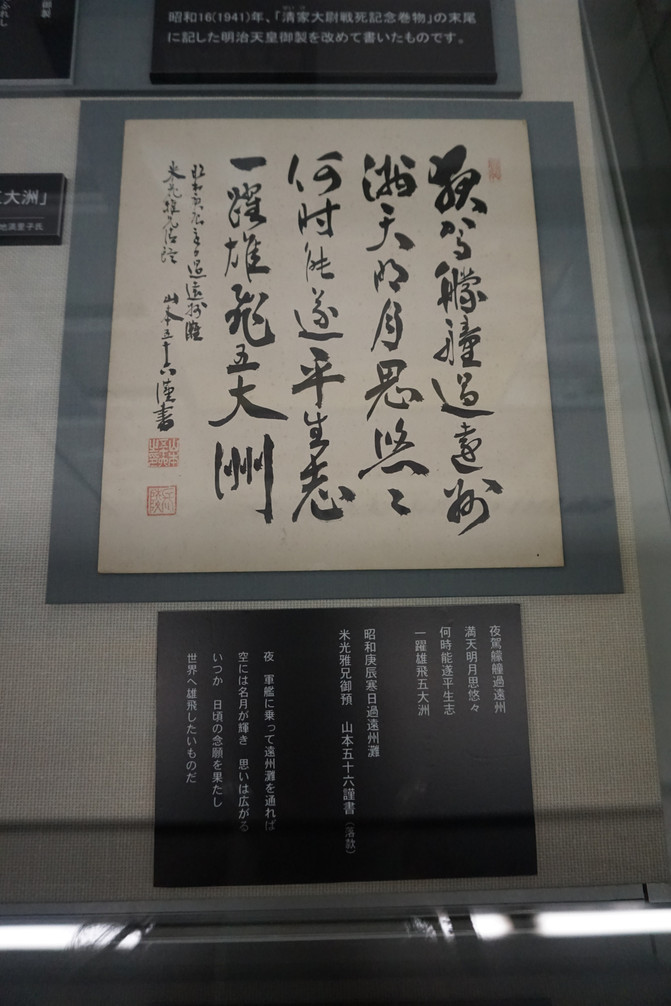 昭和16(1941)年、「清家大尉戦死記念巻物」の末尾
に記した明治天皇御製を改めて書いたものです。
大洲」
夜駕艨艟過遠州
満天明月思悠々
何時能遂平生志
一躍雄飛五大洲
山本五十六謹書
夜駕艨艟過遠州
満天明月思悠々
何時能遂平生志
一躍雄飛五大洲
昭和庚辰寒日過遠州灘
米光雅兄御預 山本五十六謹書(落款)
夜 軍艦に乗って遠州灘を通れば
空には名月が輝き 思いは広がる
いつか 日頃の念願を果たし
世界へ雄飛したいものだ